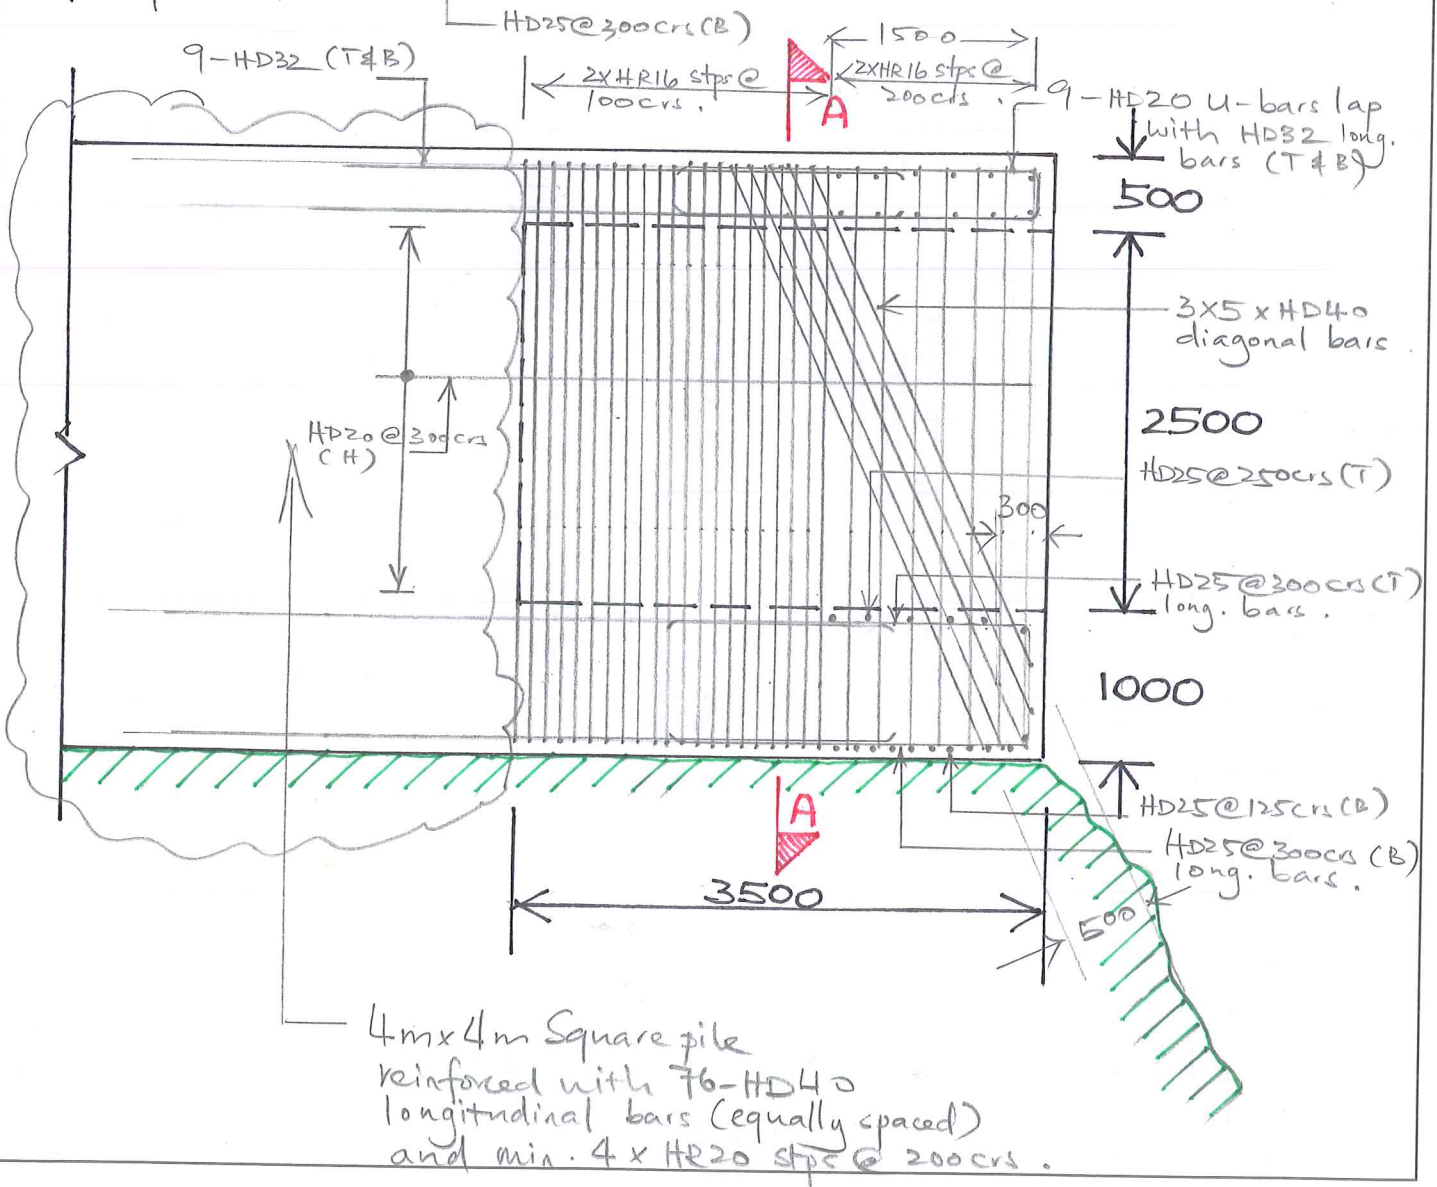 HD25@300crs(B)
9-HD32 (T&B)
2XHR16 stps@
100crs.
1500
2XHR16 stps@
200crs.
A
9-HD20 U-bars lap
with HD32 long.
bars (T&B)
500
3X5xHD40
diagonal bars.
2500
HD20@300crs
(H)
HD25@250crs(T)
300
HD25@300crs(T)
long. bars.
1000
A
HD25@125crs(B)
HD25@300crs(B)
long. bars.
3500
500
4mx4m Square pile
reinforced with 76-HD40
longitudinal bars (equally spaced)
and min. 4 x HR20 stps@ 200crs.